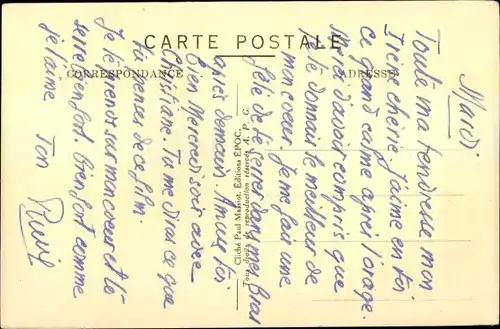 CARTE POSTALE
CORRESPONDANCE
ADRESSE
Cliché Paul Marnot. Éditions EPOC.
Tous droits de reproduction réservés A. P. G.
Mardi
Toute ma tendresse mon
Irène chérie, j'aime en toi
ce grand calme après l'orage.
Merci d'avoir compris que
je te donnais le meilleur de
mon coeur. Je me fais une
fête de te serrer dans mes bras
après demain. Amuse toi
bien Mercredi soir avec
Christiane. Tu me diras ce que
tu penses de ce film.
Je te prends sur mon coeur et te
serre bien fort. bien fort comme
je t'aime Ton